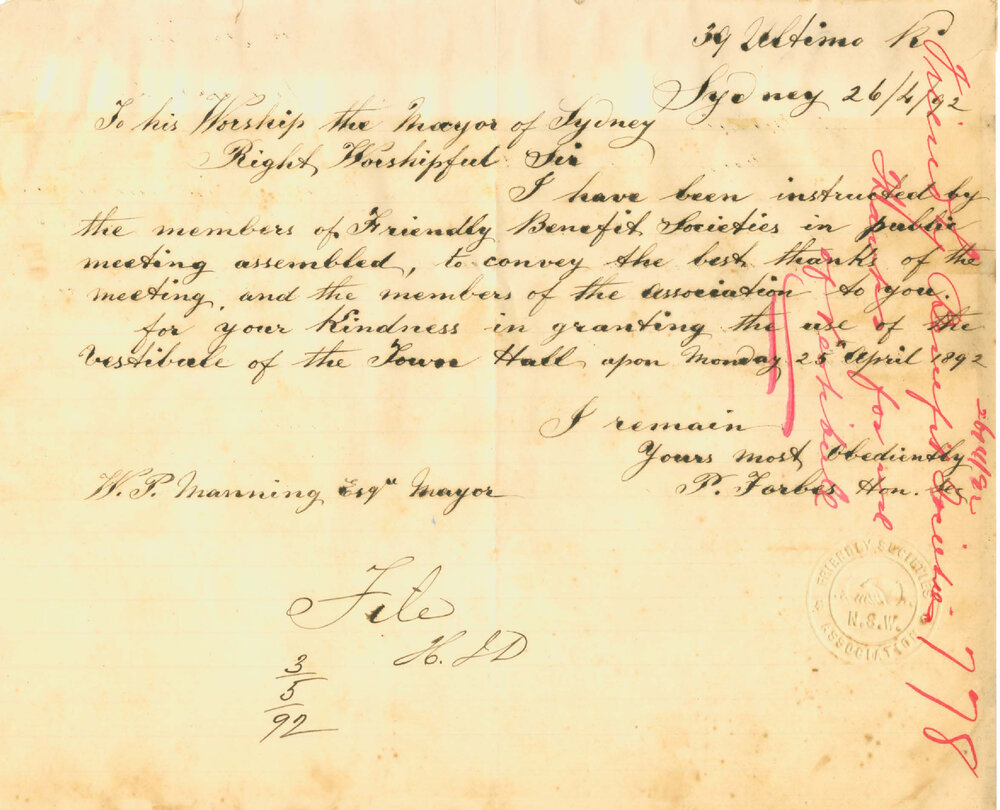 39 Ultimo Rd
Sydney 26/4/92
To his Worship the Mayor of Sydney
Right Worshipful Sir
I have been instructed by
the members of Friendly Benefit Societies in public
meeting assembled, to convey the best thanks of the
meeting and the members of the association to you.
for your kindness in granting the use of the
Vestibule of the Town Hall upon Monday 25th April 1892
I remain
Yours most Obediently
P. Forbes Hon. Sec
W. P. Manning Esqre Mayor
File
H. J D
3
5
92
FRIENDLY SOCIETIES
N.S.W.
ASSOCIATION
Friendly Benefit Societies 778
26/4/92
Thanks for use
of Vestibule